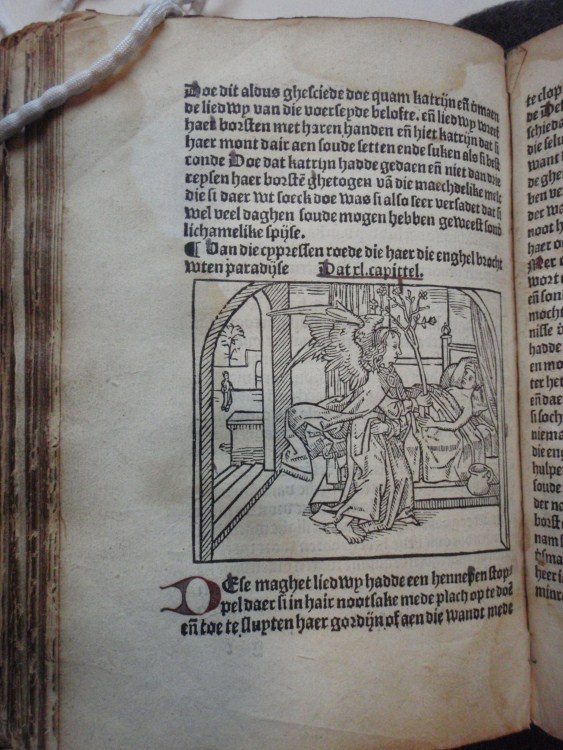 Doe dit aldus ghesciede doe quam katrijn eñ vmaen
de liedwy van die voerseyde belofte. eñ liedwy wreef
haer borsten met haren handen eñ hiet katrijn dat si
haer mont dair aen soude setten ende suken also si best
conde Doe dat katrijn hadde gedaen eñ niet dan drie
reysen haer borstē ghetogen vā die maechdelike melc
die si daer wt soeck doe was si also seer versadet dat si
wel veel daghen soude mogen hebben geweest sond
lichamelike spijse.
¶ Van die cypressen roede die haer die enghel brocht
wten paradijse Dat xl. capittel.
DEse maghet liedwy hadde een hennepen stop
pel daer si in hair nootsake mede plach op te doē
eñ toe te sluyten haer gordijn of aen die wandt mede
te clop
de
schie da
die selu
want
de ghe
ben
der wa
noot h
haer o
Mer
wort
eñ son
mocht
nisse
hadde
en mo
ter het
eñ dae
si soch
niema
die en
hulpe
soude
der na
borst
nam s
heer